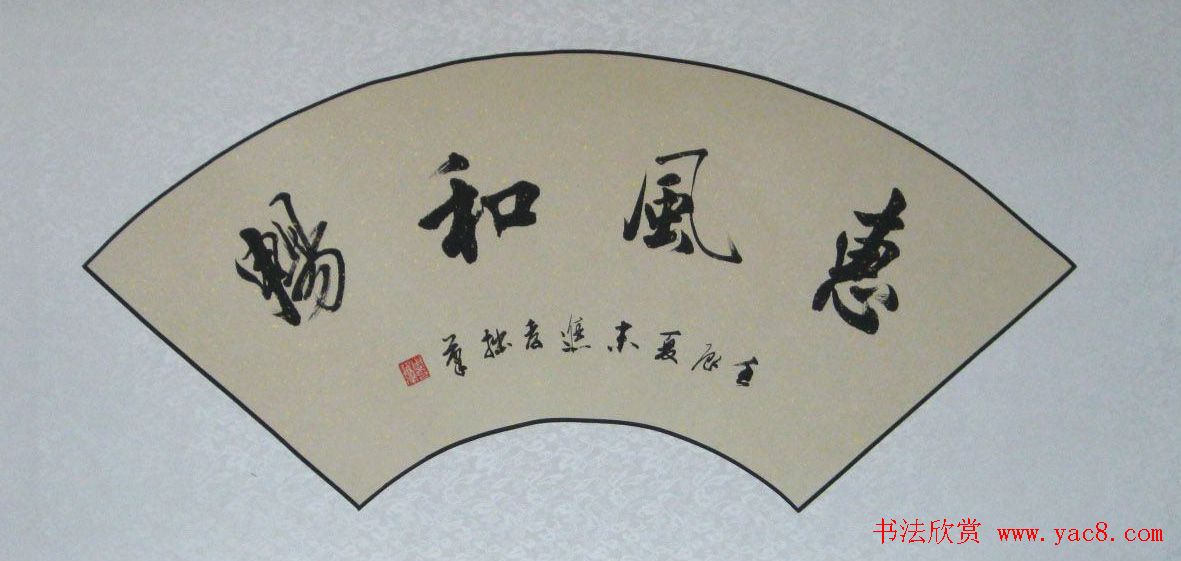 惠風和暢
壬辰夏末進孝拙筆
书法欣赏 www.yac8.com